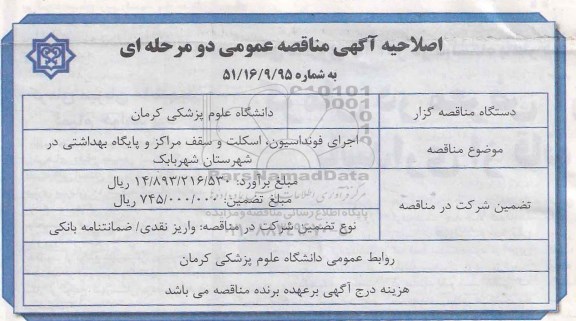 اصلاحیه آگهی مناقصه عمومی دو مرحله ای
به شماره ۵۱/۱۶/۹/۹۵
دستگاه مناقصه گزار
دانشگاه علوم پزشکی کرمان
موضوع مناقصه
اجرای فونداسیون، اسکلت و سقف مراکز و پایگاه بهداشتی در
شهرستان شهربابک
تضمین شرکت در مناقصه
مبلغ برآورد: ۱۴/۸۹۳/۲۱۶/۵۳۰ ریال
مبلغ تضمین: ۷۴۵/۰۰۰/۰۰۰ ریال
نوع تضمین شرکت در مناقصه: واریز نقدی/ ضمانتنامه بانکی
روابط عمومی دانشگاه علوم پزشکی کرمان
هزینه درج آگهی برعهده برنده مناقصه می باشد
ParsNamadData
پایگاه اطلاع رسانی مناقصه و مزایده